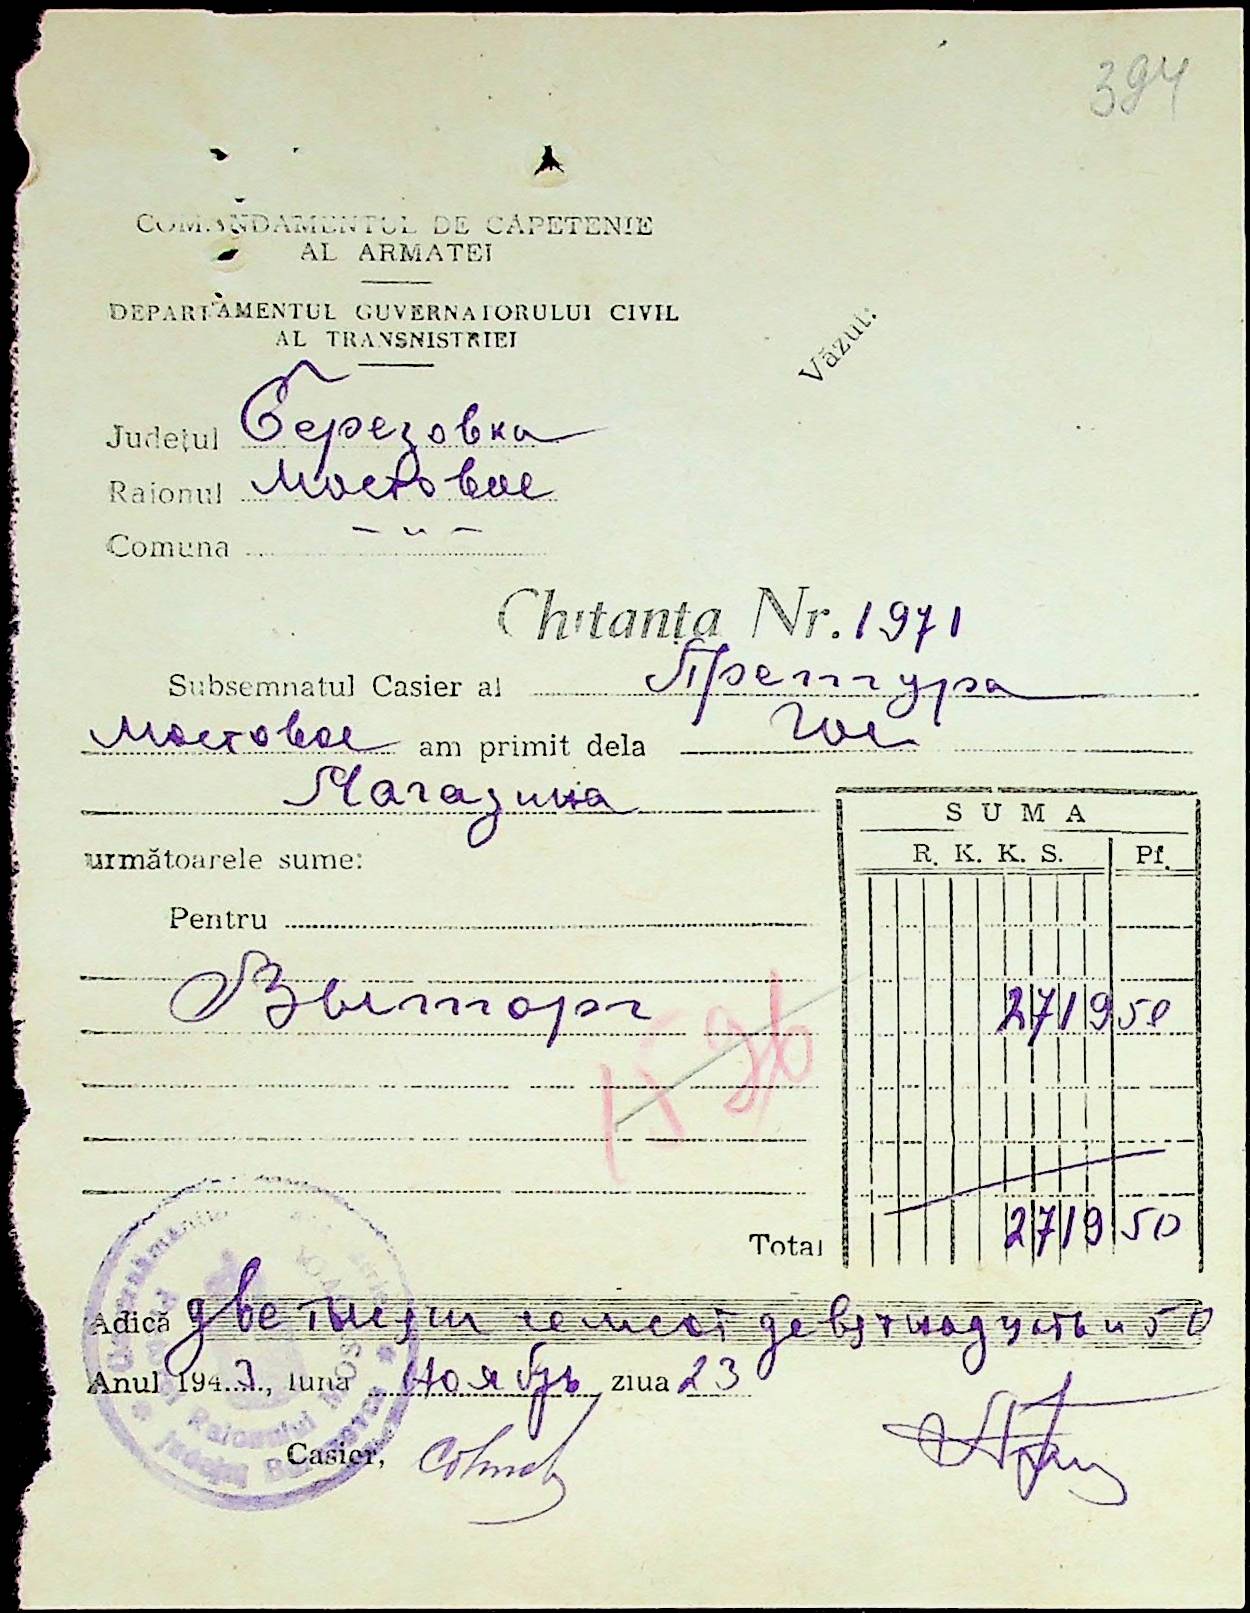 394
COMANDAMENTUL DE CAPETENIE
AL ARMATEI
DEPARTAMENTUL GUVERNATORULUI CIVIL
AL TRANSNISTRIEI
Văzut:
Județul Березовка
Raionul Мостовое
Comuna – „ –
Chitanța Nr. 1971
Subsemnatul Casier al Претура
Мостовое am primit dela Гос
Магазина
următoarele sume:
SUMA
R. K. K. S. Pf.
Pentru
Выторг 2719 50
1596
Total 2719 50
Adică две тысячи семсот девятнадцать и 50
Anul 1943, luna Ноябрь ziua 23
Casier,
Raionului
Județul